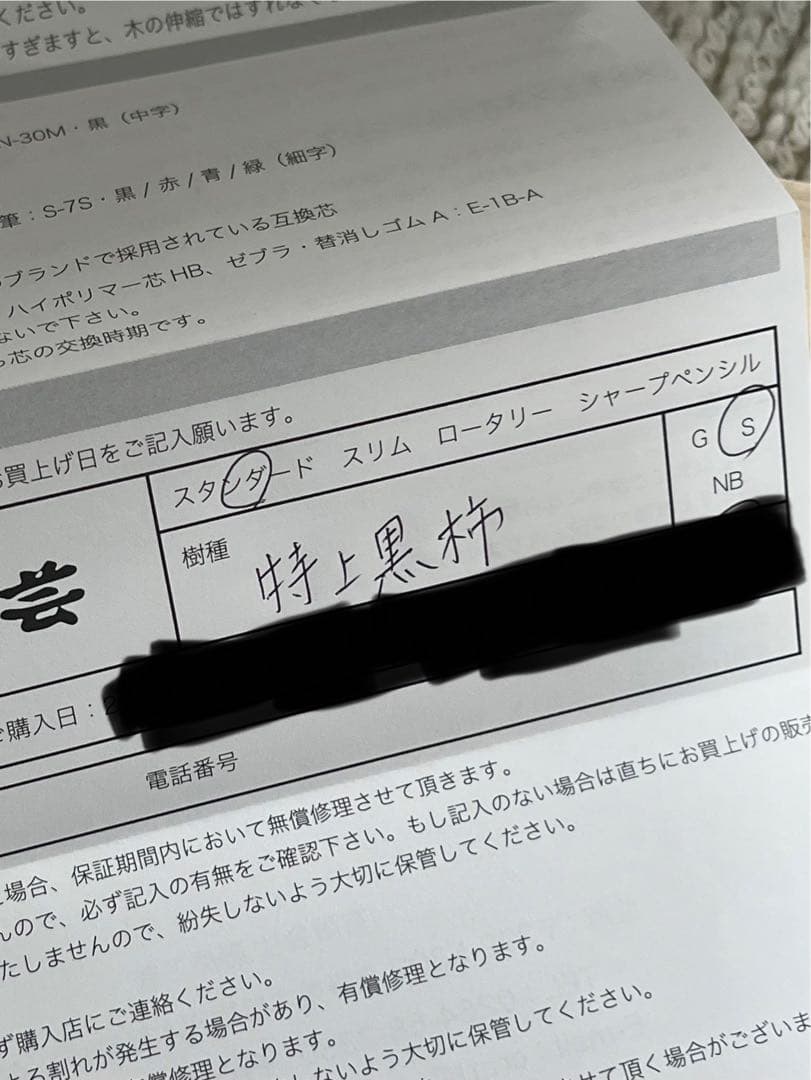 ください。
すぎますと、木の伸縮ではずれなく
N-30M・黒（中字）
筆：S-7S・黒 / 赤 / 青 / 緑（細字）
ブランドで採用されている互換芯
ハイポリマー芯 HB、ゼブラ・替消しゴム A：E-1B-A
ないで下さい。
芯の交換時期です。
お買上げ日をご記入願います。
スタンダード スリム ロータリー シャープペンシル
G S
NB
樹種 特上黒柿
芸
ご購入日：
電話番号
場合、保証期間内において無償修理させて頂きます。
んので、必ず記入の有無をご確認下さい。もし記入のない場合は直ちにお買上げの販売
たしませんので、紛失しないよう大切に保管してください。
ず購入店にご連絡ください。
よる割れが発生する場合があり、有償修理となります。
償修理となります。
しないよう大切に保管してください。
させて頂く場合がございま